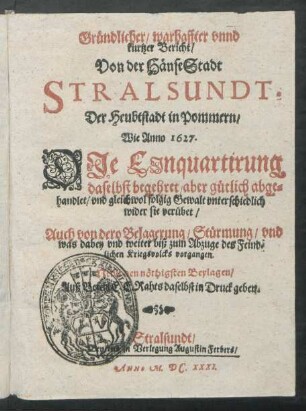 Gründlicher/ warhaffter vnnd
kurtzer Bericht/
Von der HänseStadt
STRALSUNDT.
Der Heubtstadt in Pommern/
Wie Anno 1627.
DIe Einquartirung
daselbst begehret/ aber gütlich abge-
handlet/ vnd gleichwol folgig Gewalt vnterschiedlich
wider sie verübet/
Auch von dero Belagerung/ Stürmung/ vnd
was dabey vnd weiter biß zum Abzuge des Feind-
lichen Kriegsvolcks vorgangen.
nen nötigsten Beylagen/
Auß E. E. Rahtes daselbst in Druck geben.
Stralsundt/
in Verlegung Augustin Ferbers/
ANNO M. DC. XXXI.